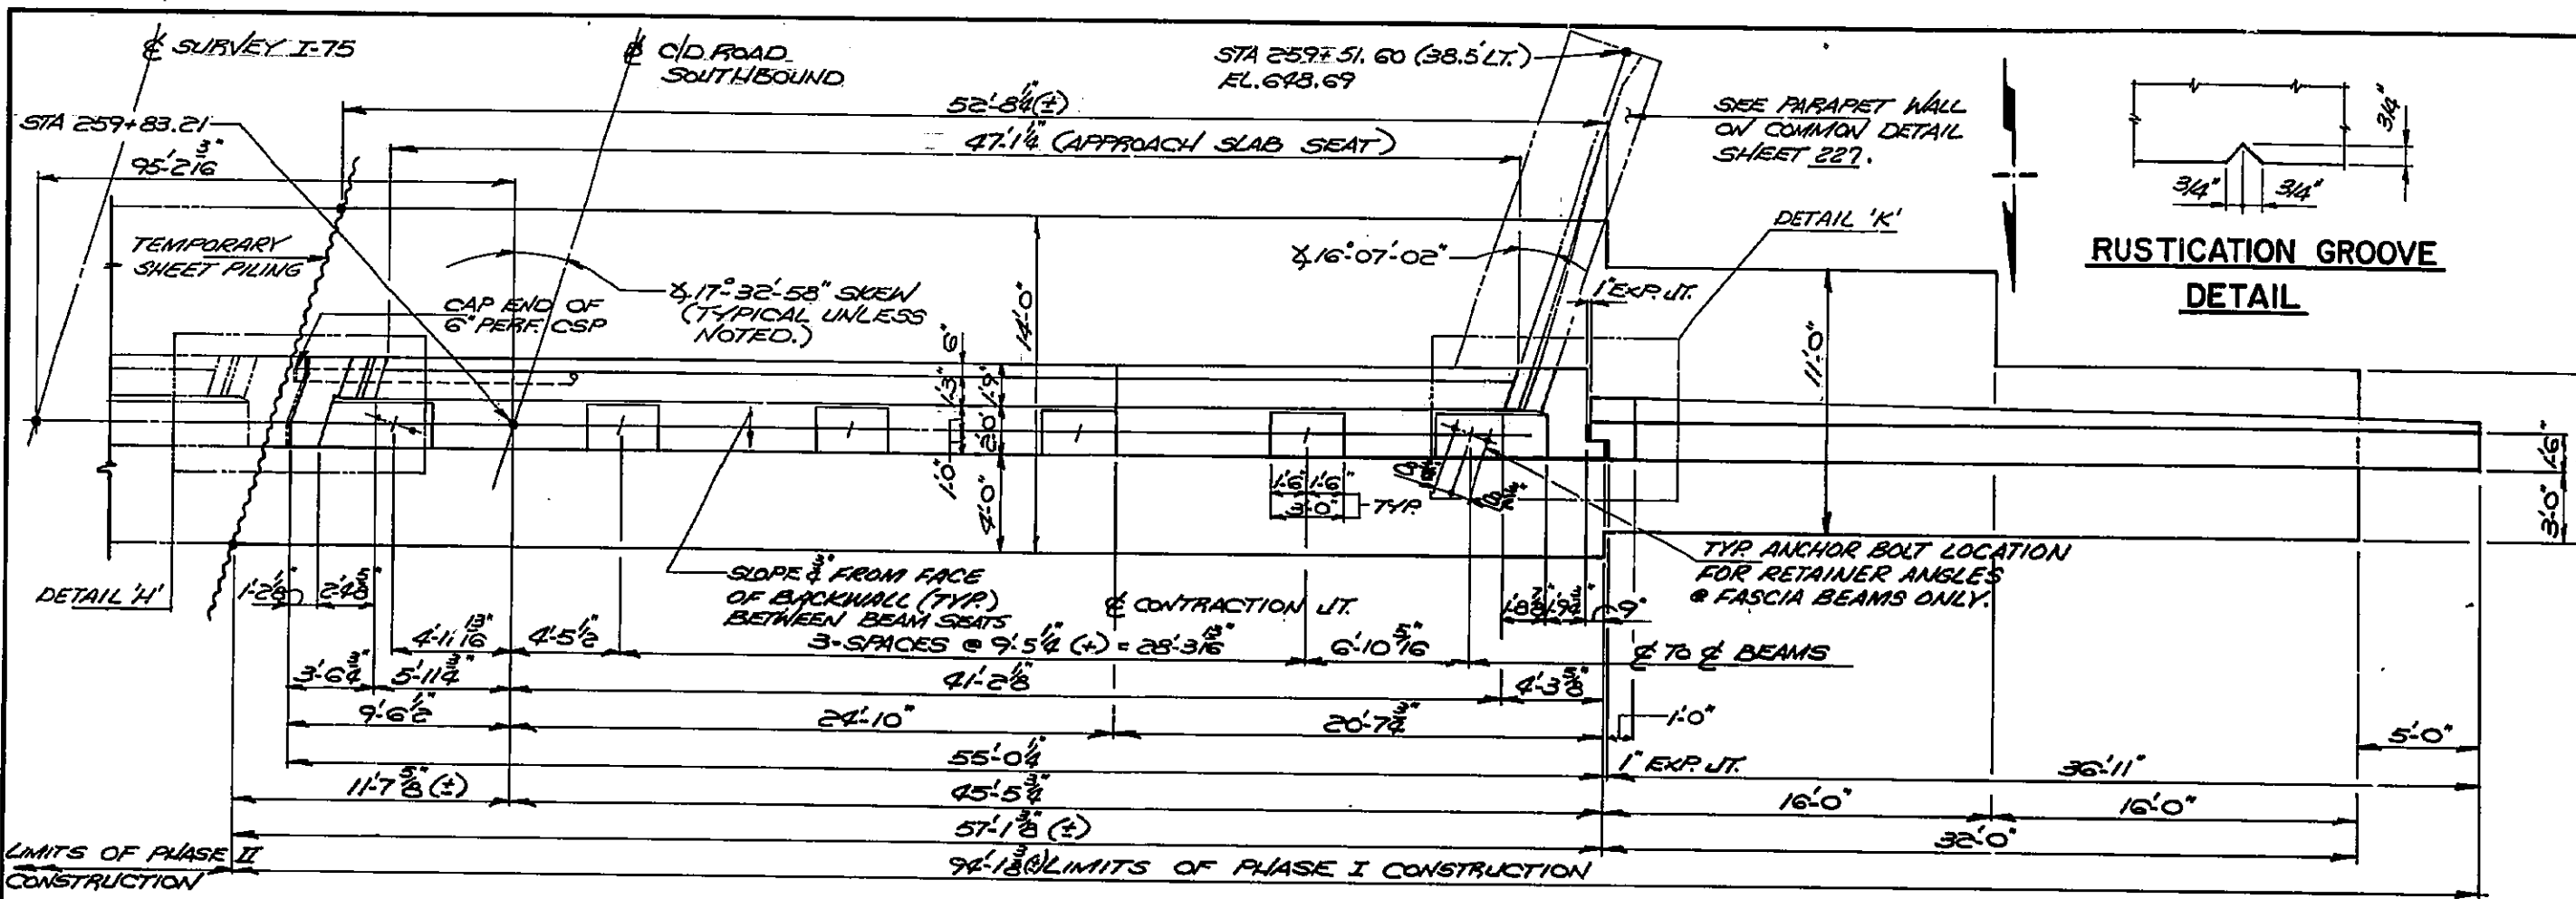 ℄ SURVEY I-75
℄ C/D ROAD
SOUTHBOUND
STA 259+51.60 (38.5'LT.)
EL.648.69
STA 259+83.21
52'-8 1/4"(±)
47'-1 1/4" (APPROACH SLAB SEAT)
95'-2 13/16"
SEE PARAPET WALL
ON COMMON DETAIL
SHEET 227.
3/4"
3/4"
3/4"
RUSTICATION GROOVE
DETAIL
TEMPORARY
SHEET PILING
CAP END OF
6" PERF. CSP
∡ 17°-32'-58" SKEW
(TYPICAL UNLESS
NOTED.)
14'-0"
∡ 16°-07'-02"
DETAIL 'K'
1" EXP. JT.
11'-0"
6"
1'-3"
1'-9"
2'-0"
1'-0"
4'-0"
1'-6" 1'-6"
3'-0"
TYP.
1'-6"
3'-0"
DETAIL 'H'
SLOPE 3/4" FROM FACE
OF BACKWALL (TYP.)
BETWEEN BEAM SEATS
℄ CONTRACTION JT.
TYP. ANCHOR BOLT LOCATION
FOR RETAINER ANGLES
@ FASCIA BEAMS ONLY.
1'-2 1/8"
2'-4 5/8"
1'-8 7/8"
1'-9 3/4"
9"
4'-11 13/16"
4'-5 1/2"
3-SPACES @ 9'-5 1/4" (±) = 28'-3 13/16"
6'-10 5/16"
℄ TO ℄ BEAMS
3'-6 3/4"
5'-11 3/4"
41'-2 1/8"
4'-3 5/8"
9'-6 1/2"
24'-10"
20'-7 3/4"
1'-0"
5'-0"
55'-0 1/4"
1" EXP. JT.
36'-11"
11'-7 5/8" (±)
45'-5 3/4"
16'-0"
16'-0"
57'-1 3/8" (±)
32'-0"
LIMITS OF PHASE II
CONSTRUCTION
94'-1 3/8"(±) LIMITS OF PHASE I CONSTRUCTION